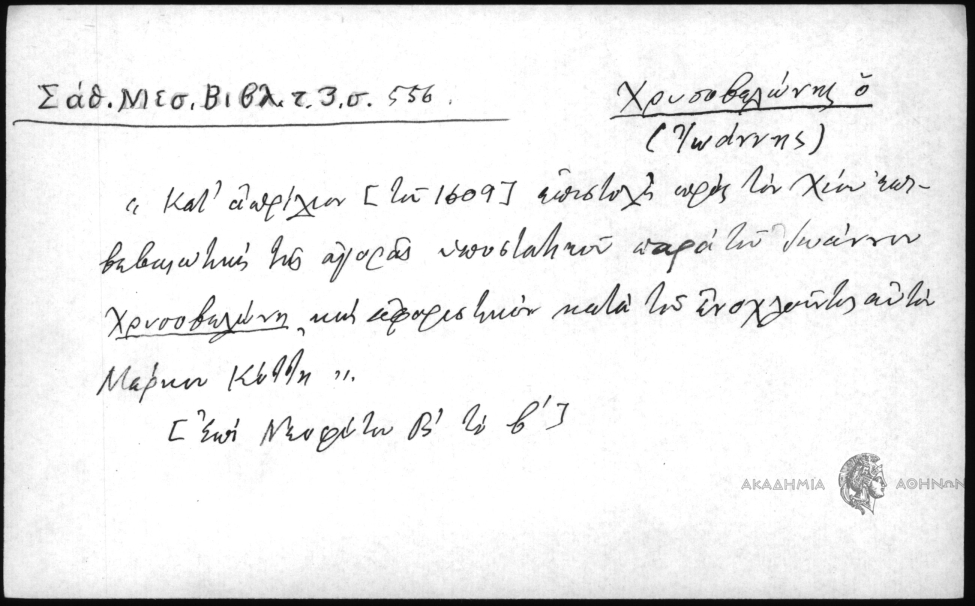 Σάθ. Μεσ. Βιβλ. τ. 3, σ. 556.
Χρυσοβελώνης ὁ
(Ἰωάννης)
„ Κατ' ἀπρίλιον [τοῦ 1609] ἐπιστολὴ πρὸς τὸν Χίου ἐπι-
βεβαιωτικὴ τῆς ἀγορᾶς ὑποστατικοῦ παρὰ τοῦ Ἰωάννου
Χρυσοβελώνη, καὶ ἀφοριστικὸν κατὰ τοῦ ἐνοχλοῦντος αὐτὸν
Μάρκου Κύττη ".
[Ἐπὶ Νεοφύτου Β' τὸ β']
ΑΚΑΔΗΜΙΑ ΑΘΗΝΩΝ